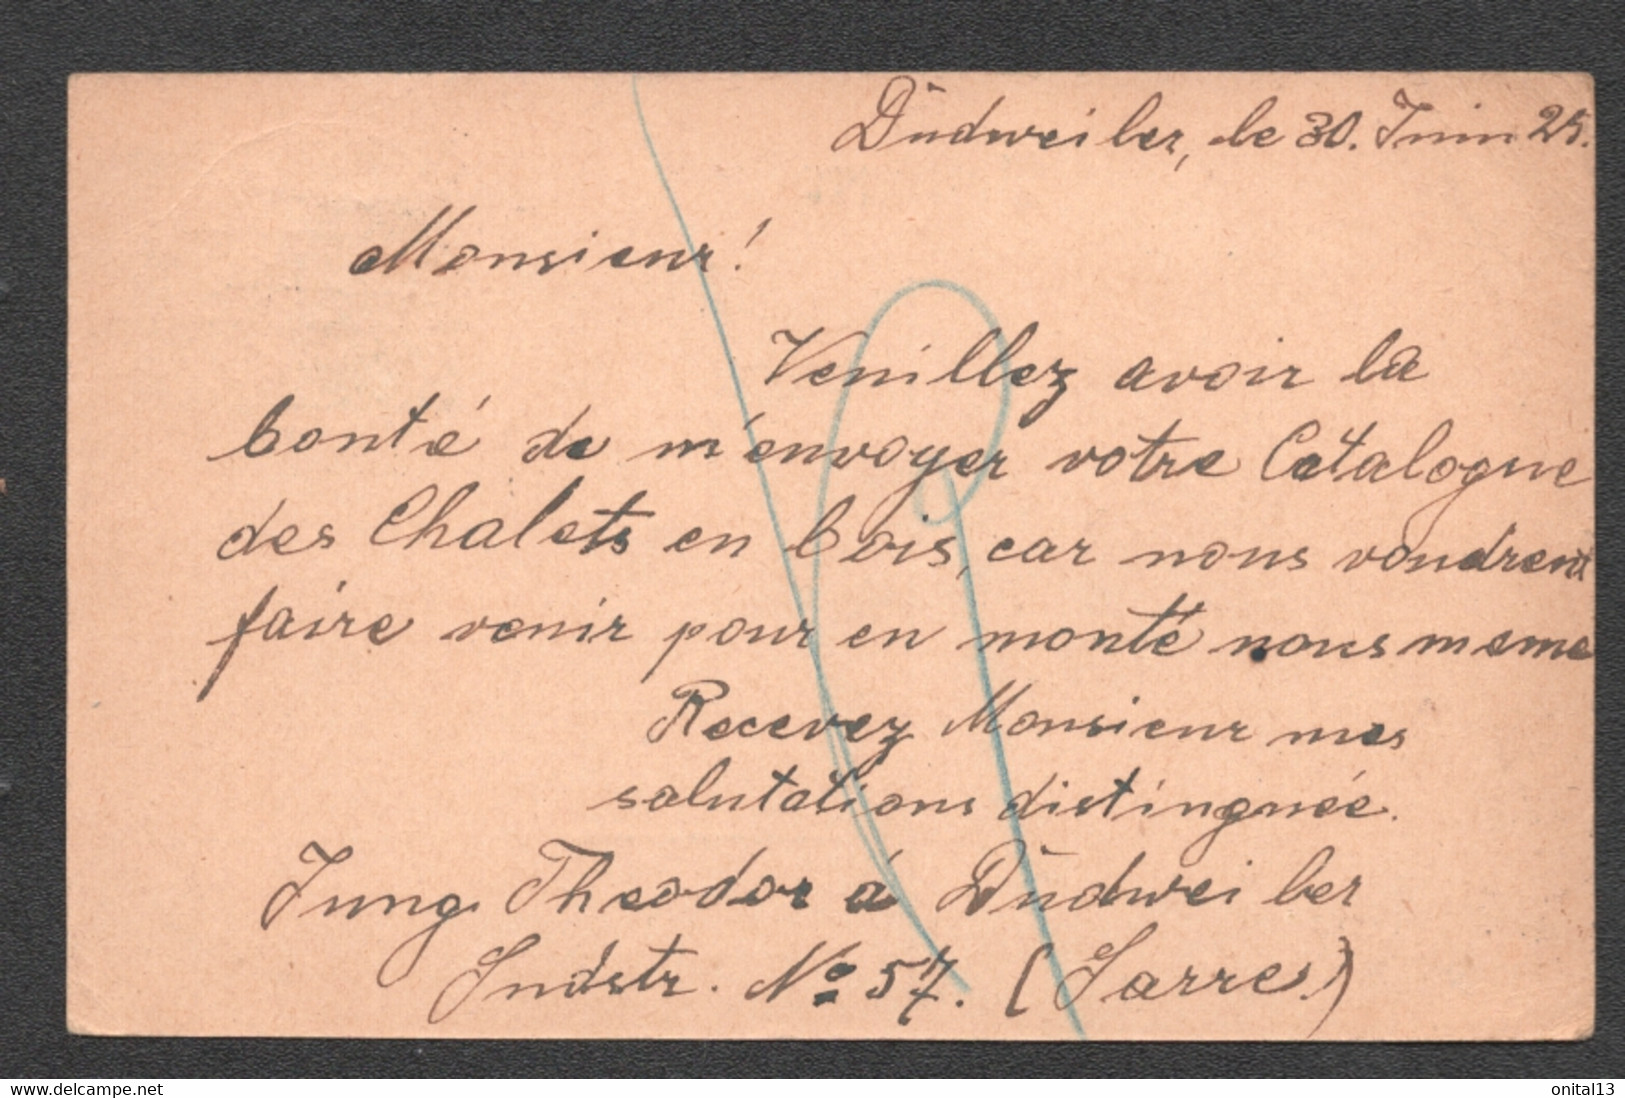 Dùdweiler, le 30. Juin 25.
Monsieur!
Veuillez avoir la
bonté de m'envoyer votre Catalogue
des Chalets en bois, car nous voudrent
faire venir pour en monté nous meme
Recevez Monsieur mes
salutations distinguée.
Jung Theodor á Dùdweiler
Indstr. No 57. (Sarre.)
delcampe.net
onital13